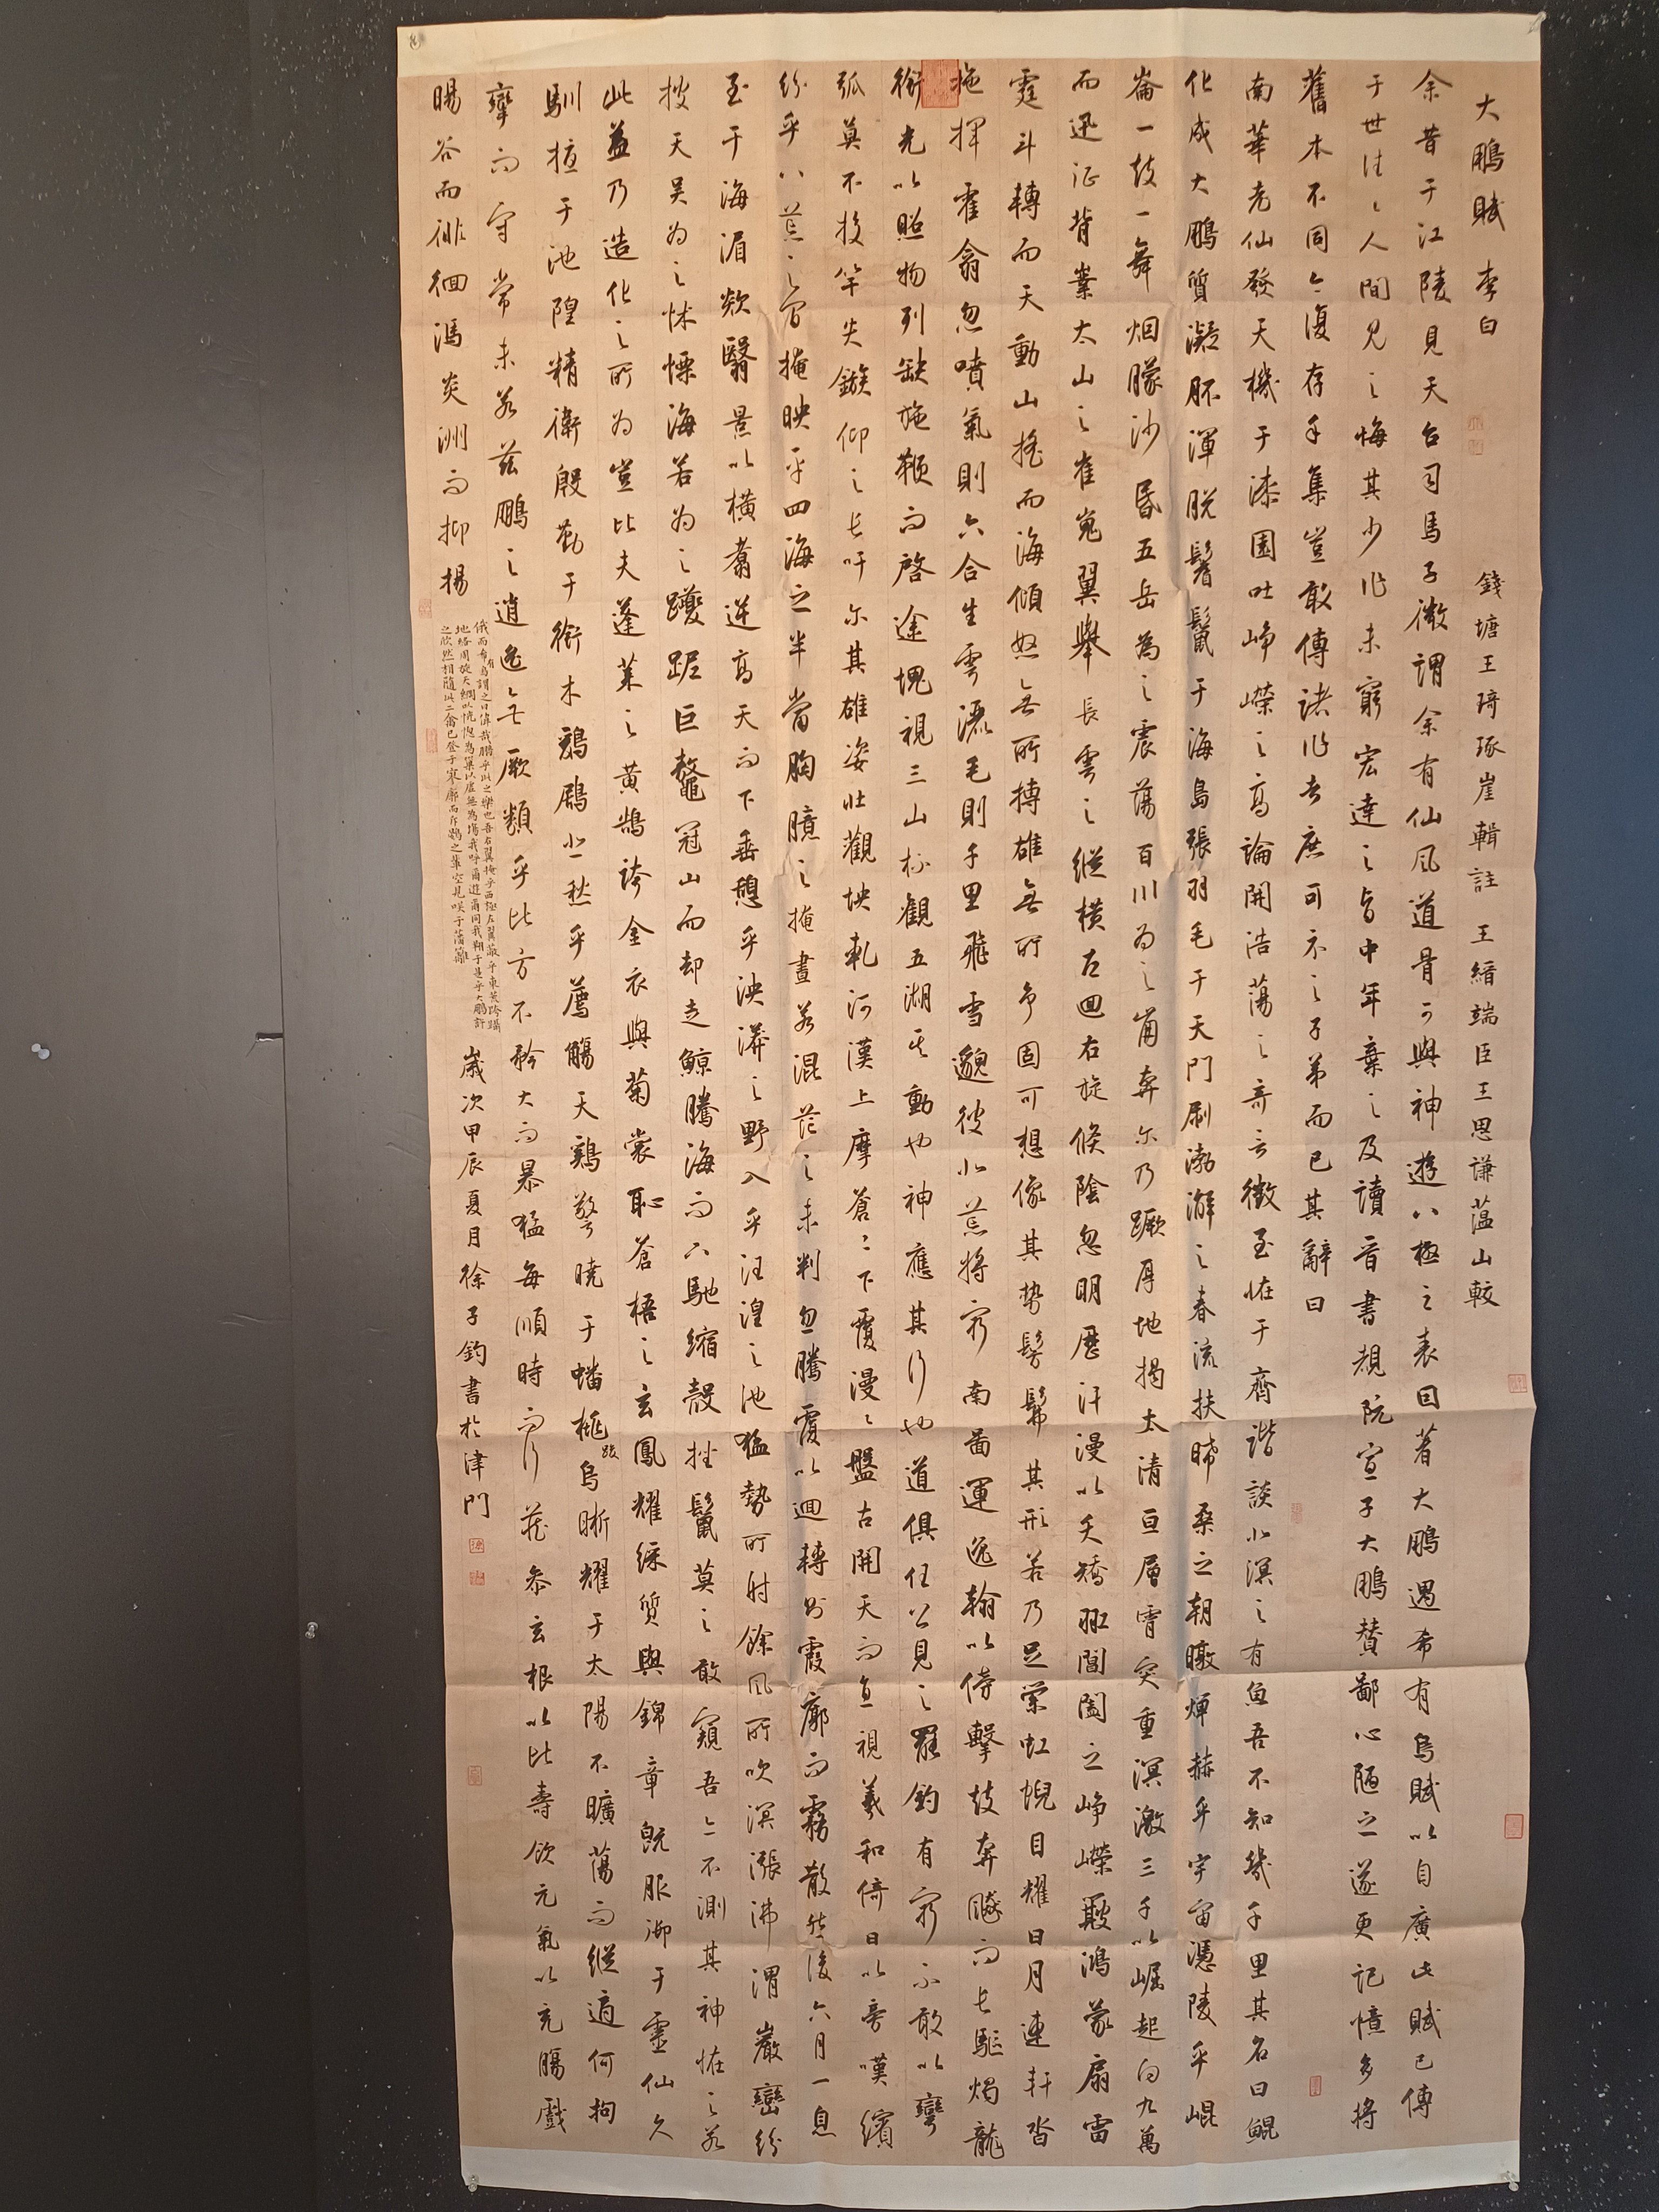 大鵬賦 李白 錢塘王琦琢崖輯註 王縉端臣王思謙蘊山較
余昔于江陵見天台司馬子微謂余有仙風道骨可與神遊八極之表因著大鵬遇希有鳥賦以自廣此賦已傳
于世往往人間見之悔其少作未窮宏達之旨中年棄之及讀晉書覩阮宣子大鵬贊鄙心陋之遂更記憶多將
舊本不同今復存手集豈敢傳諸作者庶可示之子弟而已其辭曰
南華老仙發天機于漆園吐崢嶸之高論開浩蕩之奇言徵至怪于齊諧談北溟之有魚吾不知幾千里其名曰鯤
化成大鵬質凝胚渾脫鬐鬣于海島張羽毛于天門刷渤澥之春流扶晞桑之朝暾燀赫乎宇宙憑陵乎崐
崙一鼓一舞烟朦沙昏五岳為之震蕩百川為之崩奔尔乃蹶厚地揭太清亘層霄突重溟激三千以崛起向九萬
而迅征背嶪太山之崔嵬翼舉長雲之縱橫左迴右旋倏陰忽明歷汗漫以夭矯羾閶闔之崢嶸簸鴻蒙扇雷
霆斗轉而天動山搖而海傾怒無所搏雄無所爭固可想像其勢髣髴其形若乃足縈虹蜺目耀日月連軒沓
拖揮霍翕忽噴氣則六合生雲灑毛則千里飛雪邈彼北荒將窮南圖運逸翰以傍擊鼓奔飈而長驅燭龍
銜光以照物列缺施鞭而啓途塊視三山杯觀五湖其動也神應其行也道俱任公見之罷釣有窮不敢以彎
弧莫不投竿失鏃仰之長吁尔其雄姿壯觀坱軋河漢上摩蒼蒼下覆漫漫盤古開天而直視羲和倚日以旁嘆繽
紛乎八荒之間掩映乎四海之半當胸臆之掩晝若混茫之未判忽騰覆以迴轉則霞廓而霧散然後六月一息
至于海湄欻翳景以橫翥逆高天而下垂憩乎泱漭之野入乎汪湟之池猛勢所射餘風所吹溟漲沸渭巖巒紛
披天吳為之怵慄海若為之躨跜巨鰲冠山而却走鯨騰海而下馳縮殼挫鬣莫之敢窺吾亦不測其神怪之若
此蓋乃造化之所為豈比夫蓬萊之黃鵠誇金衣與菊裳恥蒼梧之玄鳳耀綵質與錦章既服御于靈仙久
馴擾于池隍精衛殷勤于銜木鶢鶋悲愁乎薦觴天鷄警曉于蟠桃踆烏晰耀于太陽不曠蕩而縱適何拘
攣而守常未若茲鵬之逍遙無厥類乎比方不矜大而暴猛每順時而行藏參玄根以比壽飲元氣以充腸戲
暘谷而徘徊馮炎洲而抑揚
俄而希有鳥謂之曰偉哉鵬乎此之樂也吾右翼掩乎西極左翼蔽乎東荒跨躡
地絡周旋天綱以恍惚為巢以虛無為場我呼爾遊爾同我翔于是乎大鵬許
之欣然相隨此二禽已登于寥廓而斥鷃之輩空見咲于藩籬
歲次甲辰夏月徐子鈞書於津門